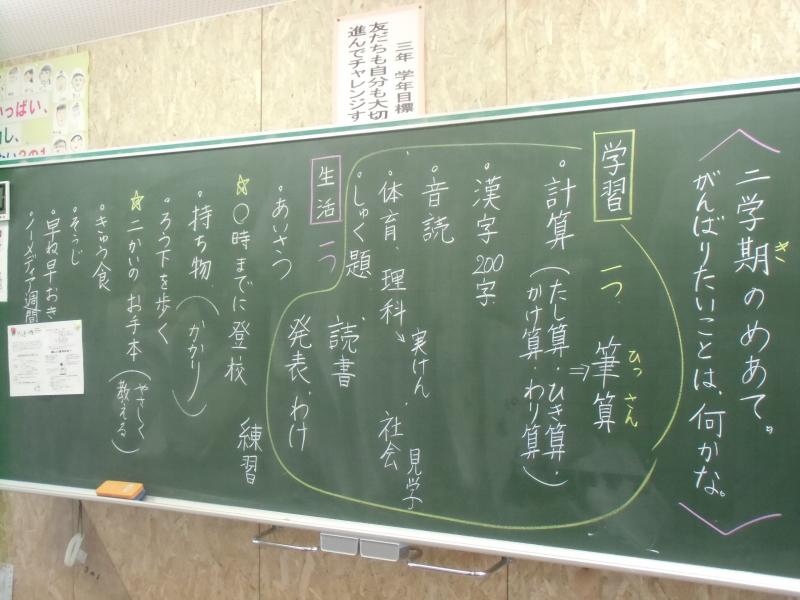 三年 学年目標
友だちも自分も大切
進んでチャレンジす
っぱい、
二学期のめあて。
き
がんばりたいことは、何かな。
学習 一つ
・計算(たし算・ひき算・
かけ算・わり算)
⇒筆算
ひっ さん
・漢字 200字
・音読
・体育・理科→実けん
社会 見学
・しゅく題
読書
発表・わけ
生活 一つ
・あいさつ
☆〇時までに登校 練習
・持ち物(かかり)
・ろう下を歩く
☆二かいのお手本(やさしく
教える)
・きゅう食
・そうじ
・早ね早おき
・ノーメディア週間